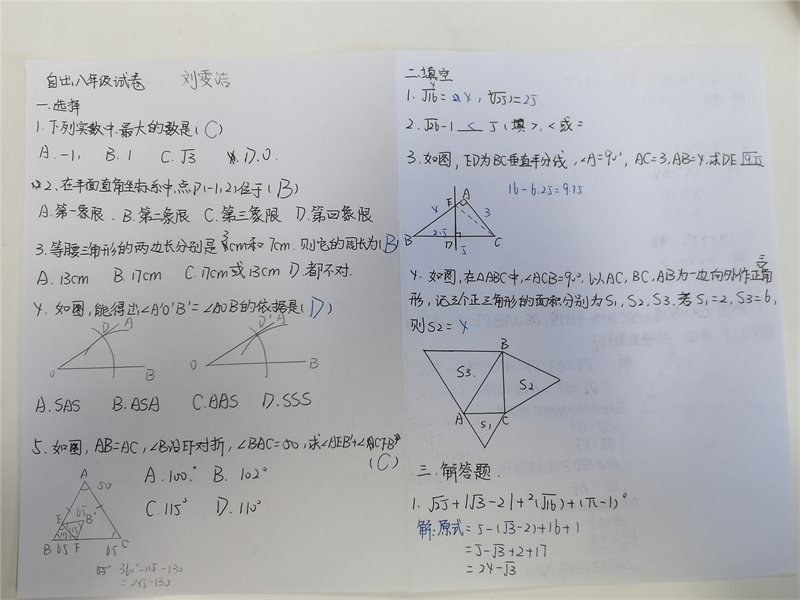 自出八年级试卷 刘雯洁
一.选择
1.下列实数中,最大的数是(C)
A.-1, B.1 C.√3 D.0.
2.在平面直角坐标系中,点P(-1,2)位于(B)
A.第一象限. B.第二象限 C.第三象限 D.第四象限
3.等腰三角形的两边长分别是3cm和7cm.则它的周长为(B)
A.13cm B.17cm C.17cm或13cm D.都不对.
4.如图,能得出∠A'O'B'=∠AOB的依据是(D)
D A
O B
D' A
O B
A.SAS B.ASA C.AAS D.SSS
5.如图,AB=AC,∠B沿EF对折,∠BAC=50,求∠AEB'+∠
(C)
A.100° B.102°
C.115° D.110°
A
50
E 65 B'
115
B 65 F 65 C
360°-115-130
=245-130
二.填空
1.√16=4,
2.√26-1 < 5(填>.<或=
3.如图,ED为BC垂直平分线,∠A=90°,AC=3,AB=4.求DE 9.75
16-6.25=9.75
A
E
4 3
2.5
B D C
5
4.如图,在△ABC中,∠ACB=90°.以AC,BC,AB为一边向外作正三角
形,记三个正三角形的面积分别为S1,S2,S3.若S1=2,S3=6,
则S2=4
B
S3. S2
A C
S1
三.解答题.
1.√25+|√3-2|+²(√16)+(π-1)°
解:原式=5-(√3-2)+16+1
=5-√3+2+17
=24-√3